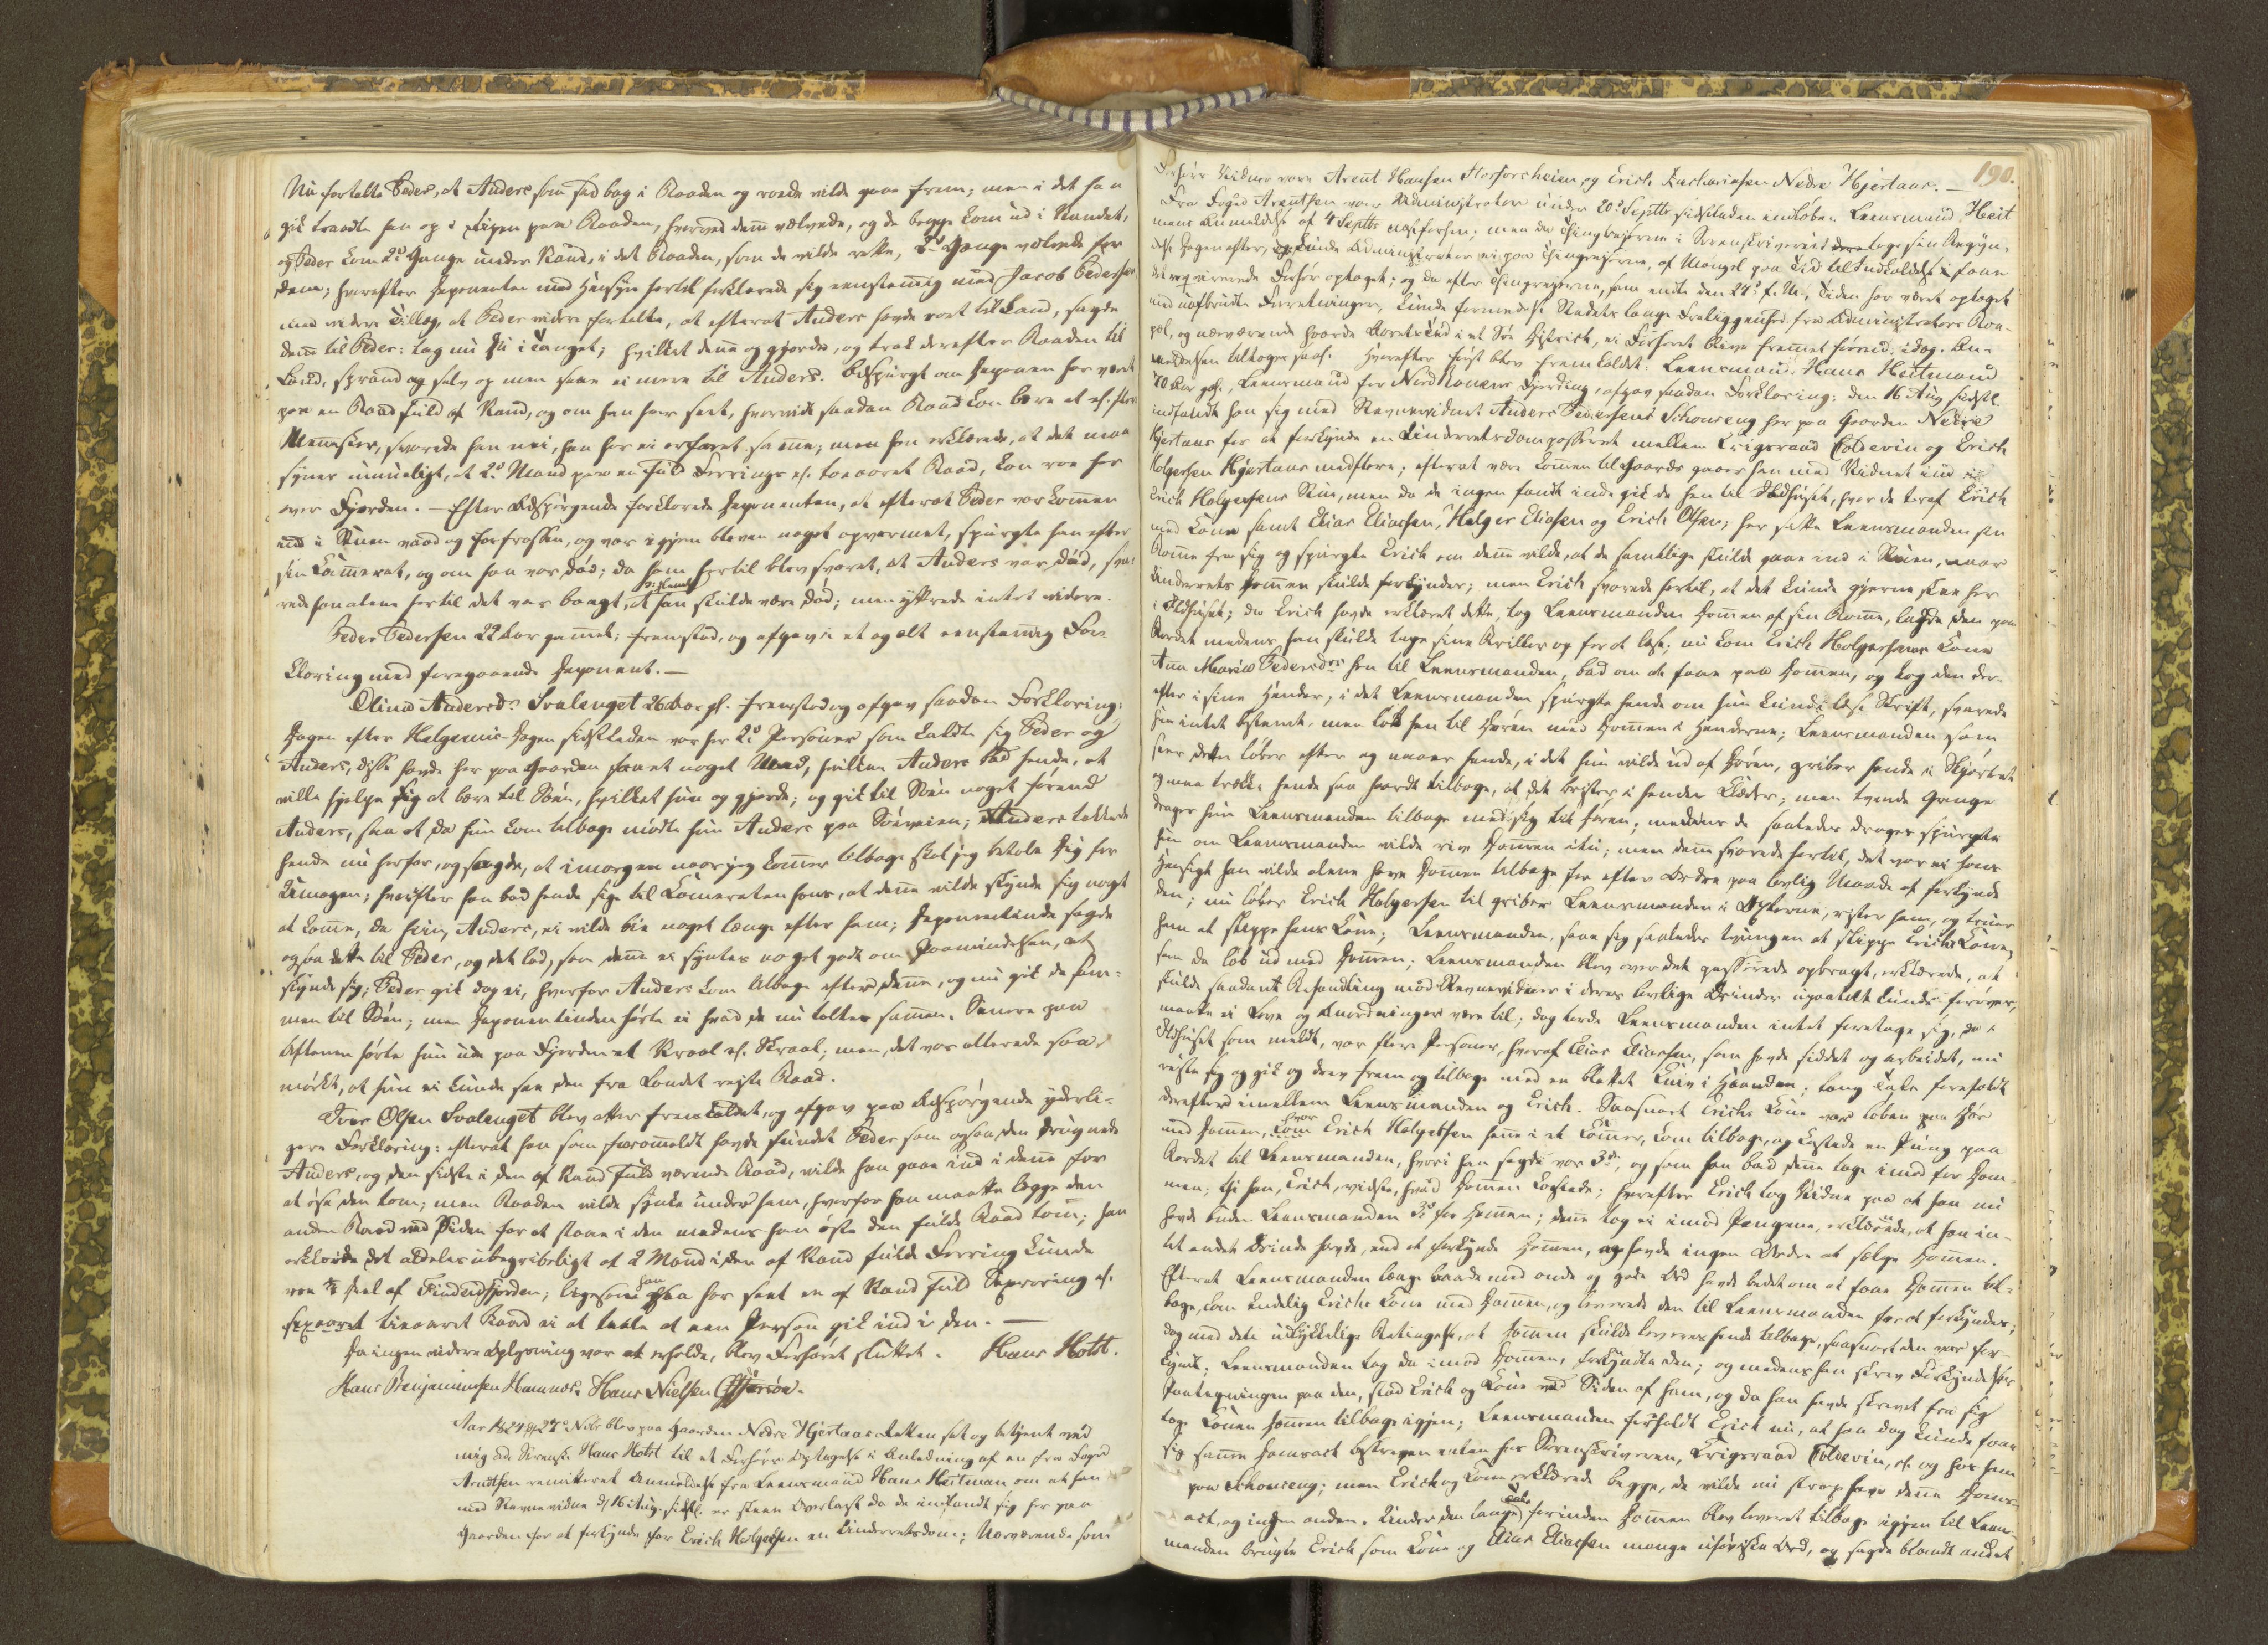 Nu fortalte Peder, at Anders som sad bag i Baaden og roede vilde gaae frem; men i det han
gik traadte han op i Ripen paa Baaden, hvorved denn vælvede, og de begge kom ud i Vandet,
og Peder kom 2de Gange under Vand, i det Baaden, som de vilde rette, 2de Gange vælvede for
dem; hvorefter Deponenten med Hensyn hertil forklarede sig eenstemmig med Jacob Pedersen
med videre Tillæg, at Peder videre fortalte, at efterat Anders havde roet til Land, sagde
denn til Peder: tag nu du i Tanget; hvilket denn og gjorde, og trak derefter Baaden til
Land, sprang og selv op men saae ei mere til Anders. Adspurgt om Deponen har været
paa en Baad fuld af Vand, og om han har seet, hvorvidt saadan Baad kan bære et el. flere
Mennesker, svarede han nei, han har ei erfaret samme; men han erklærede, at det maa
synes umueligt, at 2de Mand paa en fuld Færings el. toaaret Baad, kan roe her
over Fjorden. - Efter Adspørgende forklarede Deponenten, at efterat Peder var kommen
ind i Stuen vaad og forfrossen, og var igjen bleven noget opvarmet, spurgte han efter
sin Kammerat, og om han var død; da ham hertil blev svaret, at Anders var død, sva-
rede han alene hertil det var bangt, at han skulde være død; men yttrede intet videre.
Peder Pedersen 22 Aar gammel; fremstod, og afgav i et og alt eenstemmig For-
klaring med foregaaende Deponent. -
Olina Andersd. Svalenget 26 Aar gl. fremstod og afgav saadan Forklaring:
Dagen efter Helgemis-Dagen sidstleden var her 2de Personer som kaldte sig Peder og
Anders, disse havde her paa Gaarden faaet noget Mad, hvilken Anders bad hende, at
ville hjelpe sig at bære til Søen, hvilket hun og gjorde; og gik til Søen noget førend
Anders, saa at da hun kom tilbage mødte hun Anders paa Søeveien; Anders takkede
hende nu herfor, og sagde, at imorgen naar jeg kommer tilbage skal jeg betale dig for
Umagen; hvorefter han bad hende sige til Kameraten hans, at denn vilde skynde sig nogt
at komme, da hun, Anders, ei vilde bie noget længe efter ham; Deponentinden sagde
ogsaa dette til Peder, og det lod, som denn ei syntes noget godt om Paamindelsen, at
skynde sig; Peder gik dog ei, hvorfor Anders kom tilbage efter denne, og nu gik de sam-
men til Søen; men Deponentinden hørte ei hvad de nu talte sammen. Senere paa
Aftenen hørte hun ude paa Fjorden et Vraal el. Skraal; men, det var allerede saa
mørkt, at hun ei kunde see den fra Landet rejste Baad.
Iver Olsen Svalenget blev atter fremkaldet, og afgav paa Adspørgende yderli-
gere Forklaring: efterat han som foranmeldt havde fundet Peder som ogsaa den druknede
Anders, og den sidste i den af Vand fuld værende Baad, vilde han gaae ind i denn for
at øse den tom; men Baaden vilde synke under ham, hvorfor han maatte lægge den
anden Baad ved Siden for at staae i den medens han øste den fulde Baad tom; han
erklærede det aldeles ubegribeligt at 2 Mand i den af Vand fulde Færing kunde
roe ⅔ Deel af Findviksfjorden; ligesom han ogsaa har seet en af Vand fuld Sexroring el.
sexaaret Baad ei at taale at een Person gik ind i den. -
Da ingen videre Oplysning var at erholde, blev Forhøret sluttet. Hans Holst.
Hans Benjaminsen Hamnes. Hans Nielsen
Aar 1824 d. 27de Novbr blev paa Gaarden Nedre Hjertaas Retten sat og betjent ved
mig Adm. Sorensk. Hans Holst til et Forhørs Optagelse i Anledning af en fra Foged
Arntsen remitteret Anmeldelse fra Leensmand Hans Heitman om at han
med Stævnevidner d. 16 Aug. sidstl. er skeet Overlast da de indfandt sig her paa
Gaarden for at forkynde for Erich Holgersen en Underretsdom; Nærværende som
190.
Forhørs Vidner vare Arent Hansen Storforsheim, og Erich Zachariasen Nedre Hjertaas. -
Fra Foged Arentsen var Administrator under 20de Septbr sidstleden indløben Leensmand Heit
mans Anmeldelse af 4 Septbr næstforhen; men da Thingreiserne i Sorenskriveriet toge sin Begyn-
delse Dagen efter, kunde Administrator ei paa Thingreiserne, af Mangel paa Tid til Indkaldelse faae
det reqvirerede Forhør optaget; og da efter Thingreiserne, som endte den 24de f. M., Tiden har været optaget
med uafbrudte Forretninger, kunde formedelst Stedets lange Fraliggenhed fra Administrators Bo-
pæl, og nærværende haarde Aarets Tid i et Søe District, ei Forhøret blive fremmet førend idag. An-
meldelsen tiltoges saal. Hvorefter først blev fremkaldet: Leensmand Hans Heitmand
70 Aar gl., Leensmand for Nord Ranens Fjerding, afgav saadan Forklaring: den 16 Aug sidstl.
indfandt han sig med Stævnevidnet Anders Pedersen Schonseng her paa Gaarden Nedre
Hjertaas for at forkynde en Underretsdom passeret mellem Krigsraad Coldevin og Erich
Holgersen Hjertaas medflere; efterat være kommen til Gaards gaaer han med Vidnet ind i
Erich Holgersens Stue, men da de ingen fandt inde gik de hen til Ildhuset, hvor de traf Erich
med Kone samt Elias Eliassen, Holger Eliasen og Erich Olsen; her satte Leensmanden sin
Komme fra sig og spurgte Erich om denn vilde, at de samtlige skulde gaae ind i Stuen, naar
Underrets Dommen skulde forkyndes; men Erich svarede hertil, at det kunde gjerne skee her
i Ildhuset; da Erich havde erklæret dette, tog Leensmanden Dommen af sin Komme, lagde den paa
Bordet medens han skulde tage sine Briller op for at læse; nu kom Erich Holgersens Kone
Ana Maria Pedersdr hen til Leensmanden, bad om at faae paa Dommen, og tog den der-
efter i sine Hænder, i det Leensmanden spurgte hende om hun kunde læse Skrift, svarede
hun intet bestemt, men løb hen til Døren med Dommen i Hænderne; Leensmanden som
seer dette løber efter og naaer hende, i det hun vilde ud af Døren, griber hende i Skjørtet
og maa trække hende saa haardt tilbage, at det brister i hendes Klæder; men tvende Gange
drager hun Leensmanden tilbage med sig til Døren; medens de saaledes droges spurgte
hun om Leensmanden vilde rive Dommen itu; men denn svarede hertil, det var ei hans
Hensigt han vilde alene have Dommen tilbage for efter Ordre paa lovlig Maade at forkynde
den; nu løber Erich Holgersen til griber Leensmanden i Axlerne, rister ham, og truer
ham at slippe hans Kone; Leensmanden saae sig saaledes tvungen at slippe Erichs Kone,
som da løb ud med Dommen; Leensmanden blev over det passerede opbragt, erklærede, at
skulde saadant Behandling mod Stævnevidner i deres lovlige Ærinder upaatalt kunde forøves,
maatte ei Love og Anordninger være til; dog torde Leensmanden intet foretage sig, da i
Ildhuset som meldt, var flere Personer, hvoraf Elias Eliassen, som havde siddet og arbeidet, nu
reiste sig og gik og drev frem og tilbage med en blottet Kniv i Haanden; lang Tale foreholdt
derefter imellem Leensmanden og Erich. Saasnart Erichs Kone var løben paa Dør
med Dommen, Erich Holgersen henne i et Kammer, kom tilbage, og kastede en Pung paa
Bordet til Leensmanden, hvori han sagde var 3 Sp, og som han bad denn tage imod for Dom-
men; thi han, Erich, vidste, hvad Dommen kostede; hvorefter Erich tog Vidne paa at han nu
havde buden Leensmanden for Dommen; denn tog ei imod Pengene, erklærede, at han in-
tet andet Ærinde havde, end at forkynde Dommen, og havde ingen Ordre at sælge Dommen.
Efterat Leensmanden længe baade med onde og gode Ord havde bedet om at faae Dommen til-
bage, kom Endelig Erichs Kone med Dommen, og leverede den til Leensmanden for at forkyndes;
dog med den udtrykkelige Betingelse, at Dommen skulde leveres hende tilbage, saasnart den var for-
kyndt. Leensmanden tog da imod Dommen, forkyndte den; og medens han skrev Forkyndelses
Paategningen paa den, stod Erich og Kone ved Siden af ham, og da han havde skrevet fra sig
tog Konen Dommen tilbage igjen; Leensmanden forholdt Erich nu, at han dog kunde faae
sig samme Domsact bestreven enten hos Sorenskriveren, Krigsraad Coldevin, el. og hos ham
paa Schonseng; men Erich og Kone erklærede begge, de vilde nu strax have denne Doms-
act, og ingen anden. Under den lange Tale forinden Dommen blev leveret tilbage igjen til Leens-
manden brugte Erich som Kone og Elias Eliassen mange uhøviske Ord, og sagde blandt andet